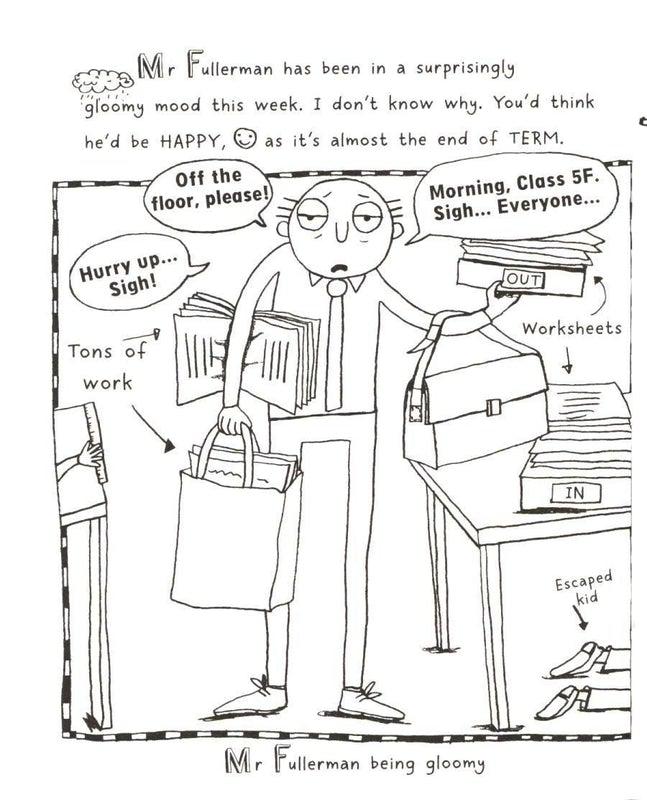 Mr Fullerman has been in a surprisingly
gloomy mood this week. I don't know why. You'd think
he'd be HAPPY, as it's almost the end of TERM.
Off the
floor, please!
Morning, Class 5F.
Sigh... Everyone...
Hurry up...
Sigh!
OUT
Worksheets
Tons of
work
IN
Escaped
kid
Mr Fullerman being gloomy